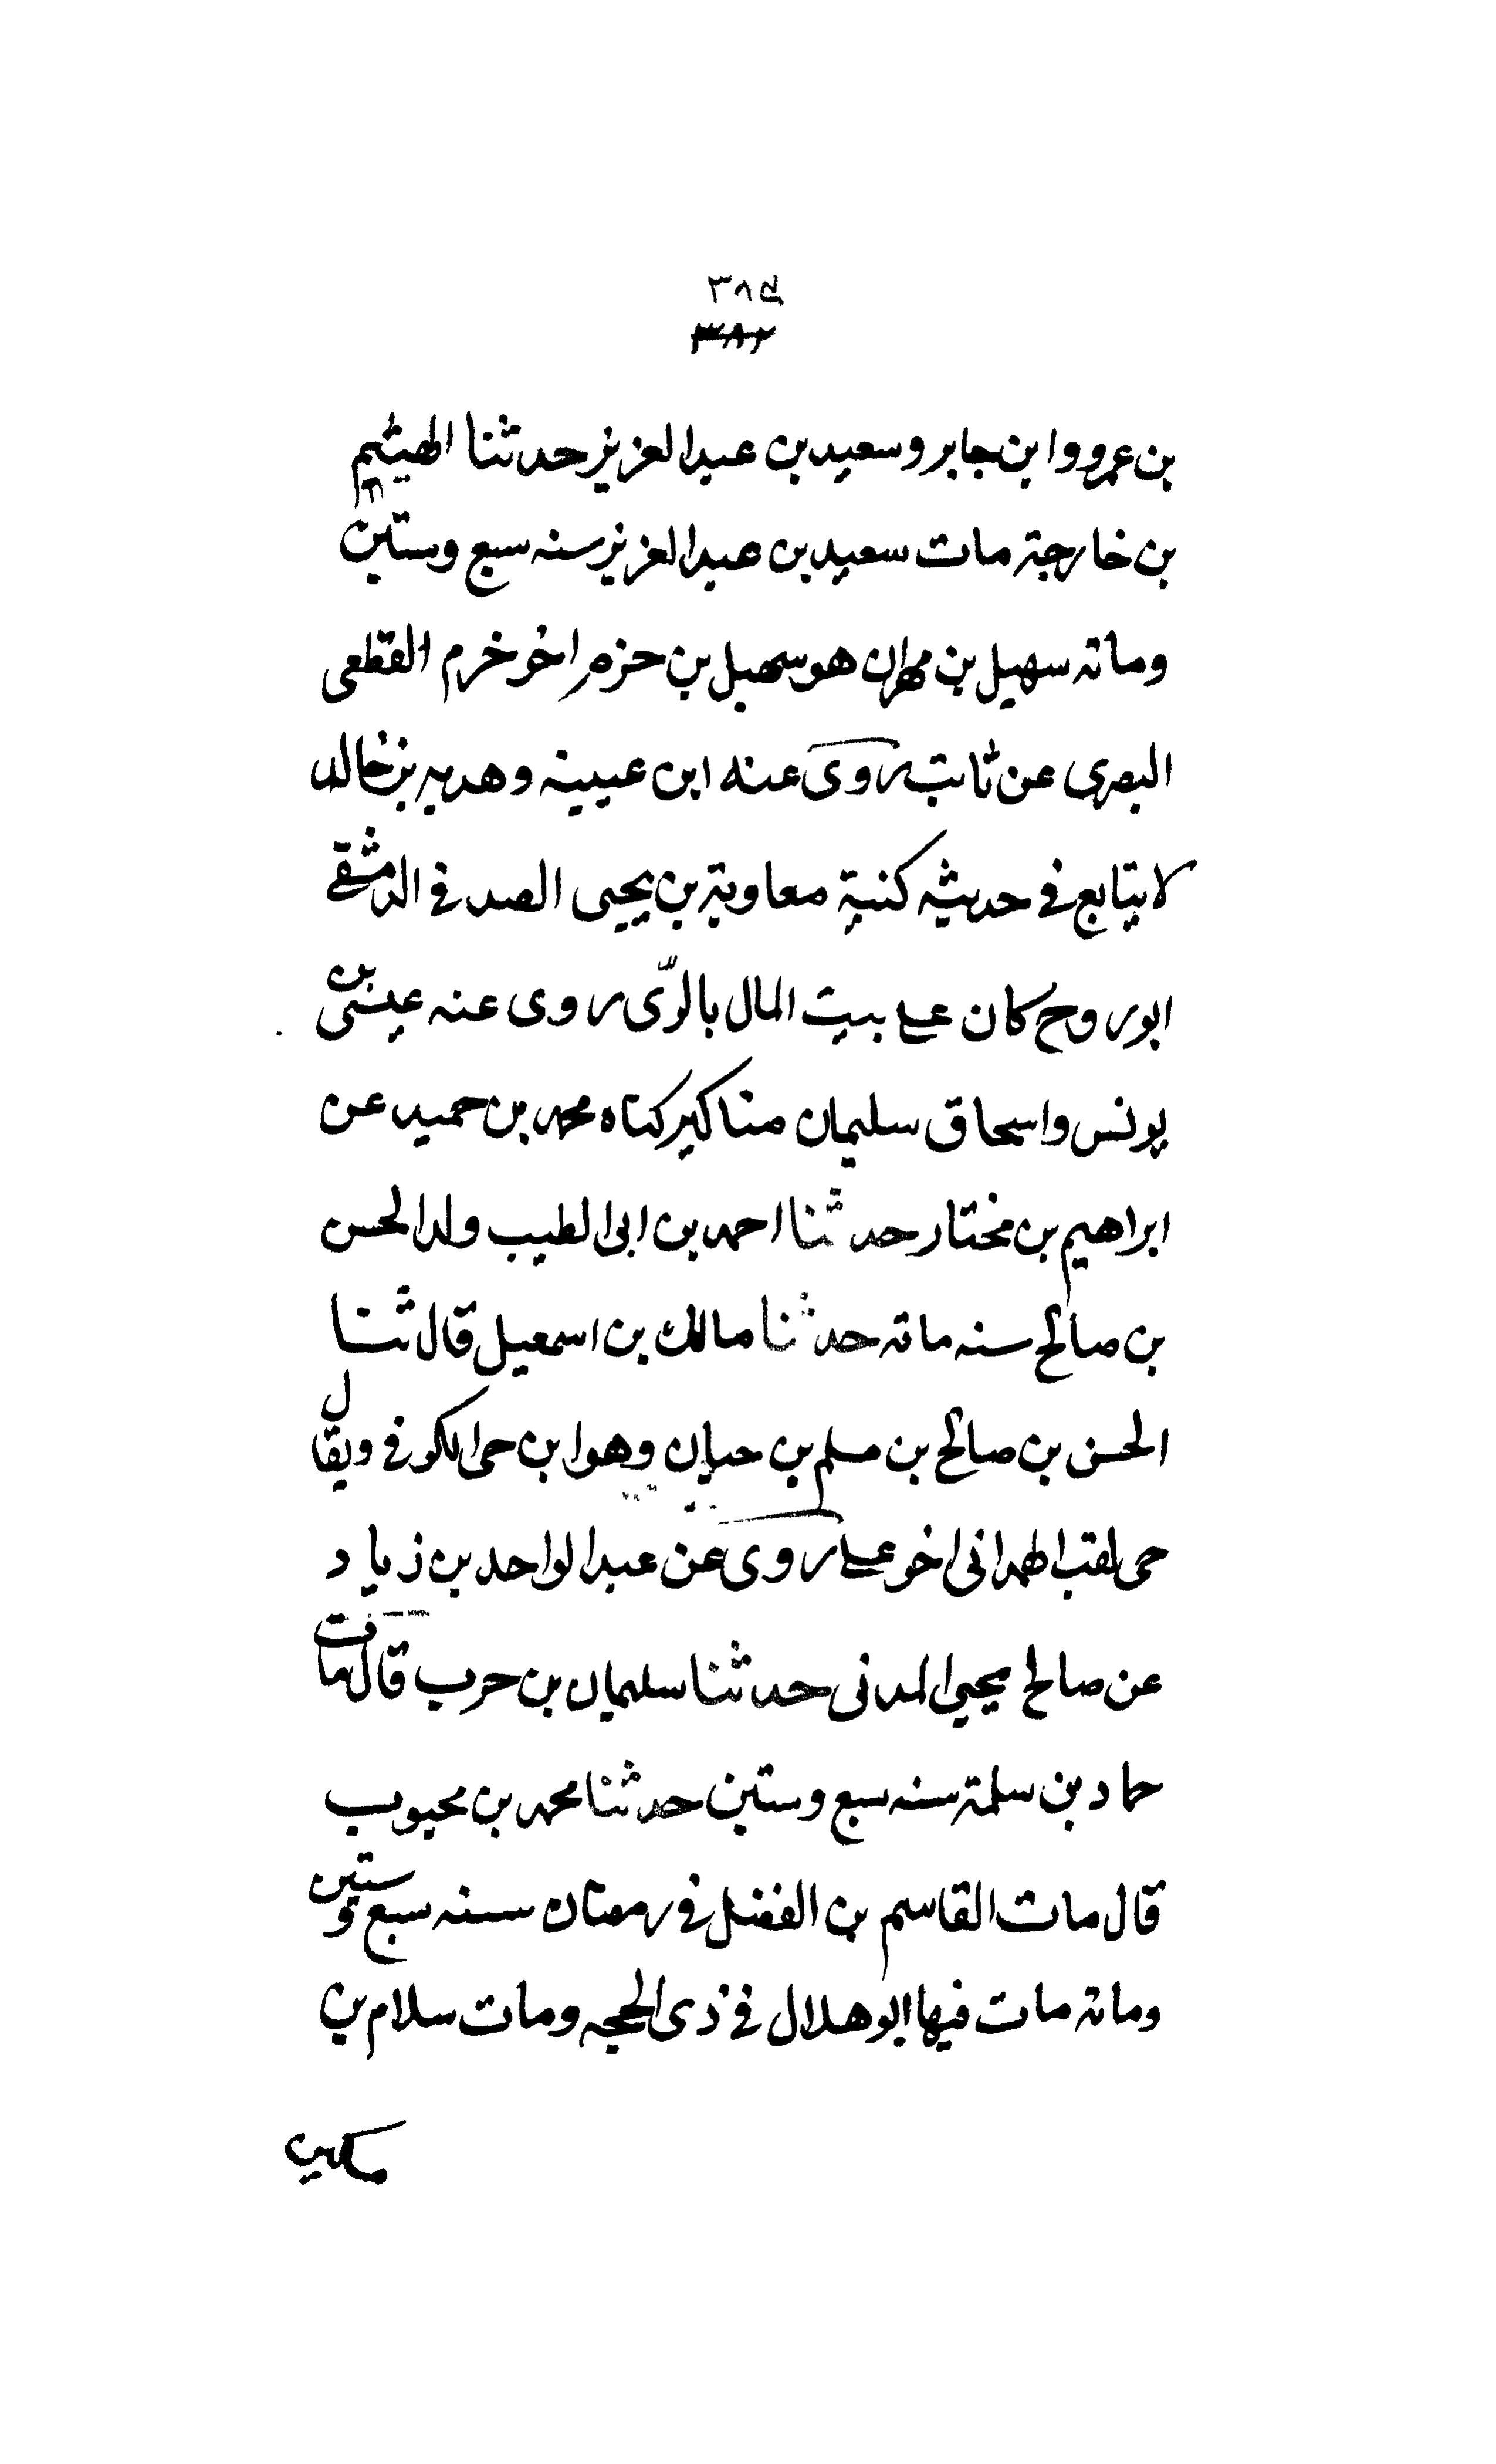 ٣٨٤
٣٨٢
بن عمرو وابن جابر وسعيد بن عبد العزيز حدثنا الهيثم
بن خارجة مات سعيد بن عبد العزيز سنه سبع وستين
ومائه سهيل بن مهران هو سهيل بن حزم اخو خرم القطعى
البصرى عن ثابت روى عنه ابن عيينه وهدبه بن خالد
لا يتابع فى حديثه كنية معاوية بن يحيى الصدفى الدمشقى
ابو روح كان على بيت المال بالرّى روى عنه عيسى بن
يونس واسحاق سليمان مناكير كناه محمد بن حميد عن
ابراهيم بن مختار حدثنا احمد بن ابى الطيب ولد الحسن
بن صالح سنه مائه حدثنا مالك بن اسمعيل قال ثنا
الحسن بن صالح بن مسلم بن حيان وهو ابن حى الكوفى ويقال
حى لقب الهمدانى اخو على روى عن عبد الواحد بن زياد
عن صالح يحيى المدنى حدثنا سليمان بن حرب قال مات
حماد بن سلمة سنه سبع وستين حدثنا محمد بن محبوب
قال مات القاسم بن الفضل فى رمضان سنه سبع وستين
ومائه مات فيها ابو هلال فى ذى الحجه ومات سلام بن
مسكين